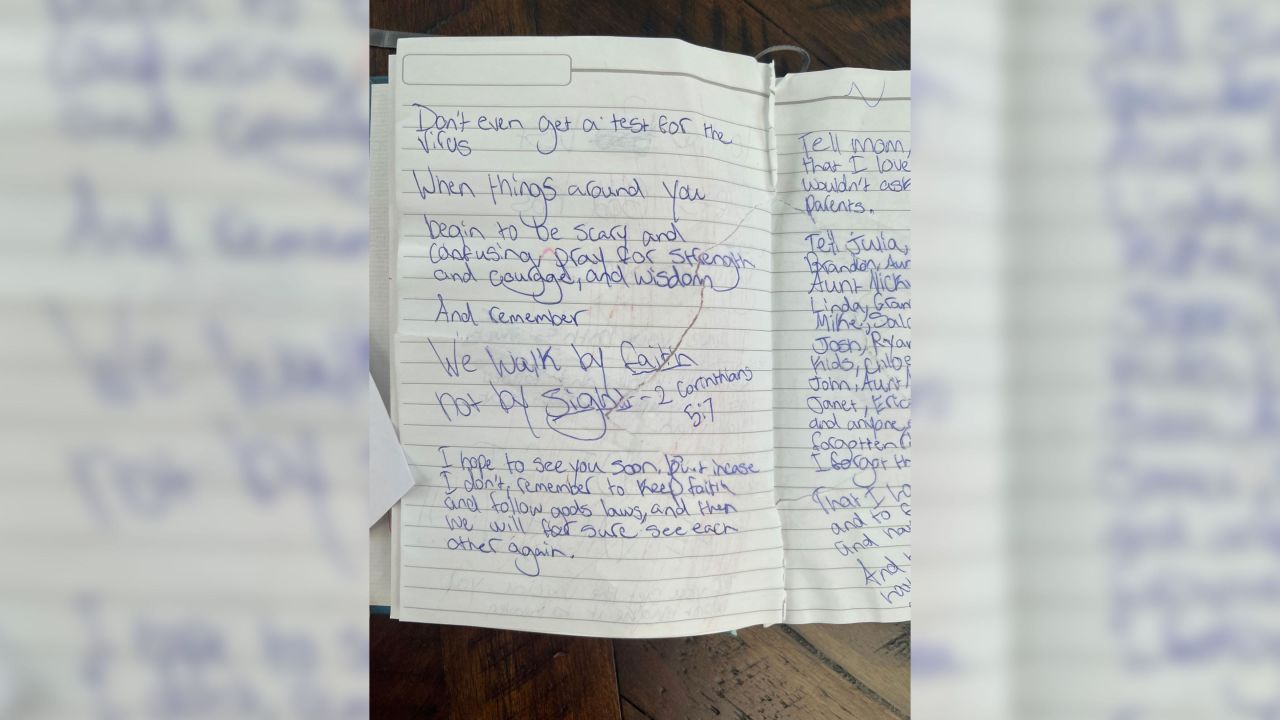 Don't even get a test for the
virus
When things around you
begin to be scary and
confusing, pray for strength
and courage, and wisdom
And remember
We walk by faith
not by Sight - 2 Corinthians
5:7
I hope to see you soon, but incase
I don't, remember to keep faith
and follow gods laws, and then
we will for sure see each
other again.
Tell mom,
that I love
wouldn't ask
parents.
Tell Julia,
Brandon, Aun
Aunt Nick
Linda, Gran
Mike,
Josh, Ryan
Kids,
John, Aunt
Janet, Eric
and anyone
forgotten
I forgot th
That I lo
and to
and
And